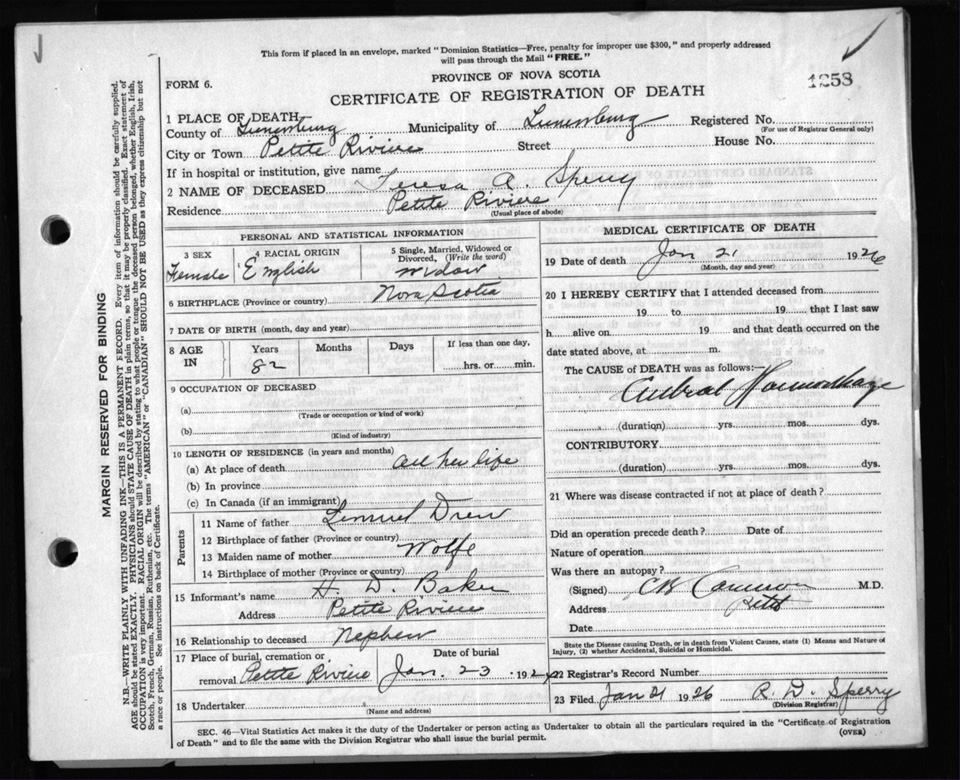 This form if placed in an envelope, marked "Dominion Statistics—Free, penalty for improper use $300," and properly addressed
will pass through the Mail "FREE."
PROVINCE OF NOVA SCOTIA
FORM 6.
1258
CERTIFICATE OF REGISTRATION OF DEATH
1 PLACE OF DEATH
County of Lunenburg Municipality of Lunenburg Registered No.
(For use of Registrar General only)
City or Town Petite Riviere Street House No.
If in hospital or institution, give name
2 NAME OF DECEASED Teresa A. Sperry
Residence Petite Riviere
(Usual place of abode)
PERSONAL AND STATISTICAL INFORMATION
3 SEX Female
4 RACIAL ORIGIN English
5 Single, Married, Widowed or
Divorced, (Write the word)
widow
6 BIRTHPLACE (Province or country) Nova Scotia
7 DATE OF BIRTH (month, day and year)
8 AGE IN
Years Months Days If less than one day,
82 hrs. or min.
9 OCCUPATION OF DECEASED
(a)
(Trade or occupation or kind of work)
(b)
(Kind of industry)
10 LENGTH OF RESIDENCE (in years and months)
(a) At place of death all her life
(b) In province
(c) In Canada (if an immigrant)
Parents
11 Name of father Lemuel Drew
12 Birthplace of father (Province or country)
13 Maiden name of mother Wolfe
14 Birthplace of mother (Province or country)
15 Informant's name H. D. Baker
Address Petite Riviere
16 Relationship to deceased Nephew
17 Place of burial, cremation or Date of burial
removal Petite Riviere Jan. 23 192
18 Undertaker
(Name and address)
MEDICAL CERTIFICATE OF DEATH
19 Date of death Jan 21 1926
(Month, day and year)
20 I HEREBY CERTIFY that I attended deceased from
19 to 19 that I last saw
h alive on 19 and that death occurred on the
date stated above, at m.
The CAUSE of DEATH was as follows:—
Cerebral Haemorrhage
(duration) yrs. mos. dys.
CONTRIBUTORY
(duration) yrs. mos. dys.
21 Where was disease contracted if not at place of death?
Did an operation precede death? Date of
Nature of operation
Was there an autopsy?
(Signed) Cameron M.D.
Address
Date
State the Disease causing Death, or in death from Violent Causes, state (1) Means and Nature of
Injury, (2) whether Accidental, Suicidal or Homicidal.
22 Registrar's Record Number
23 Filed Jan 21 1926 R. D. Sperry
(Division Registrar)
SEC. 46—Vital Statistics Act makes it the duty of the Undertaker or person acting as Undertaker to obtain all the particulars required in the "Certificate of Registration
of Death" and to file the same with the Division Registrar who shall issue the burial permit.
(OVER)
MARGIN RESERVED FOR BINDING
N.B.—WRITE PLAINLY WITH UNFADING INK—THIS IS A PERMANENT RECORD. Every item of information should be carefully supplied.
AGE should be stated EXACTLY. PHYSICIANS should STATE CAUSE OF DEATH in plain terms, so that it may be properly classified. Exact statement of
OCCUPATION is very important. RACIAL ORIGIN will be described by stating to what people or tongue the deceased person belonged, whether English, Irish,
Scotch, French, German, Russian, Ruthenian, etc. The terms "AMERICAN" or "CANADIAN" SHOULD NOT BE USED as they express citizenship but not
a race or people. See instructions on back of Certificate.